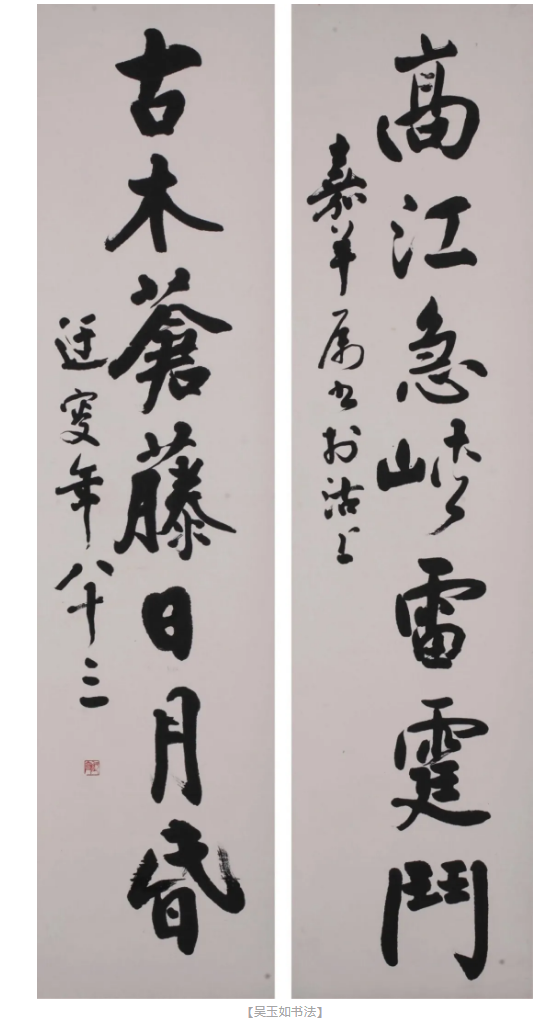 高江急峽雷霆鬥
嘉羊属书於沽上
古木蒼藤日月昏
迂叟年八十三
【吴玉如书法】